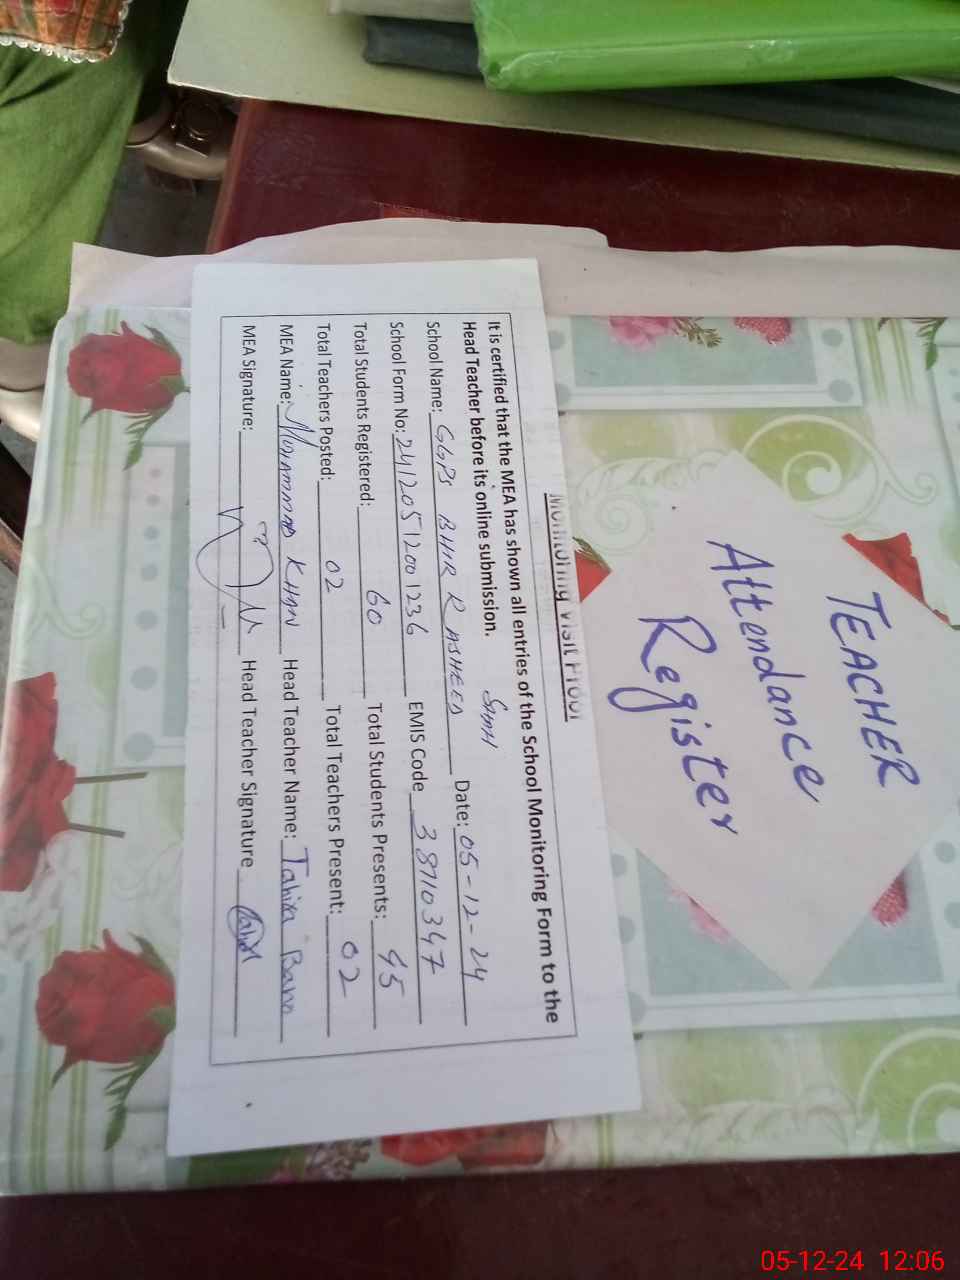 TEACHER
Attendance
Register
Monitoring Visit Proof
It is certified that the MEA has shown all entries of the School Monitoring Form to the
Head Teacher before its online submission.
School Name: GGPS BHIR RASHEED SHAH Date: 05-12-24
School Form No: 241205 1200 1236 EMIS Code 38710347
Total Students Registered: 60 Total Students Presents: 45
Total Teachers Posted: 02 Total Teachers Present: 02
MEA Name: MUHAMMAD KHAN Head Teacher Name: Tahira Bano
MEA Signature: Head Teacher Signature
05-12-24 12:06